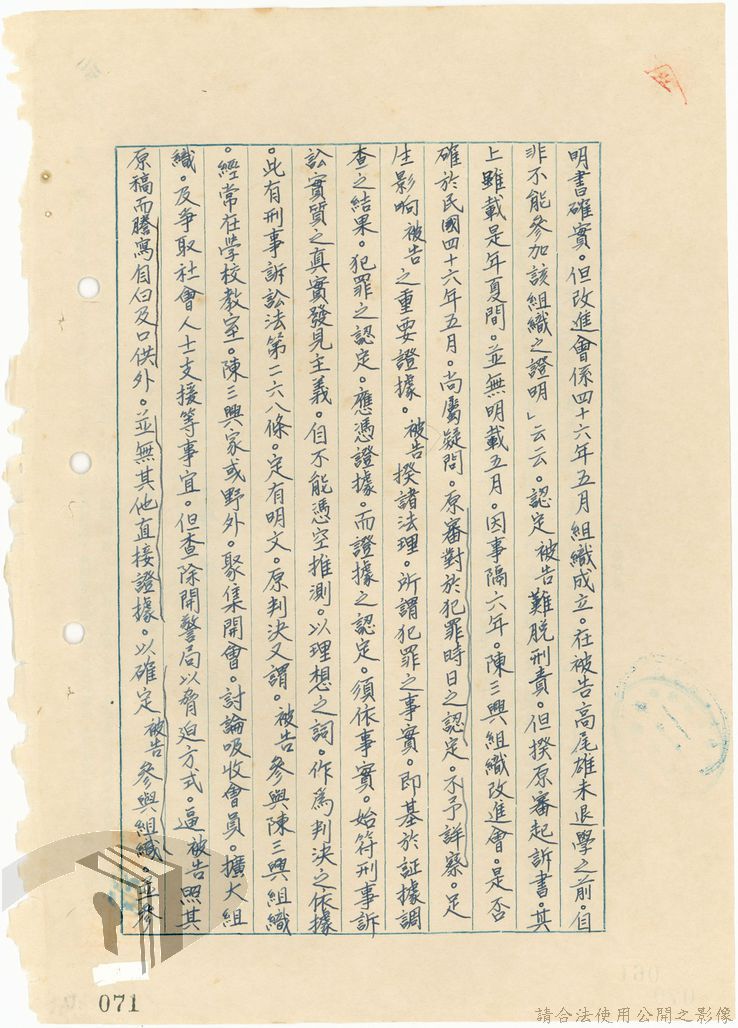 明書確實。但改進會係四十六年五月組織成立。在被告高尾雄未退學之前。自
非不能參加該組織之證明」云云。認定被告難脱刑責。但揆原審起訴書。其
上雖載是年夏間。並無明載五月。因事隔六年。陳三興組織改進會。是否
確於民國四十六年五月。尚屬疑問。原審對於犯罪時日之認定。不予詳察。足
生影响被告之重要證據。被告揆諸法理。所謂犯罪之事實。即基於証據調
查之結果。犯罪之認定。應憑證據。而證據之認定。須依事實。始符刑事訴
訟實質之真實發見主義。自不能憑空推測。以理想之詞。作為判決之依據
。此有刑事訴訟法第二六八條。定有明文。原判決又謂。被告參與陳三興組織
。經常在学校教室。陳三興家或野外。聚集開會。討論吸收會員。擴大組
織。及爭取社會人士支援等事宜。但查除開警局以脅迫方式。逼被告照其
原稿而謄寫自白及口供外。並無其他直接證據。以確定被告參與組織。並參
071
請合法使用公開之影像